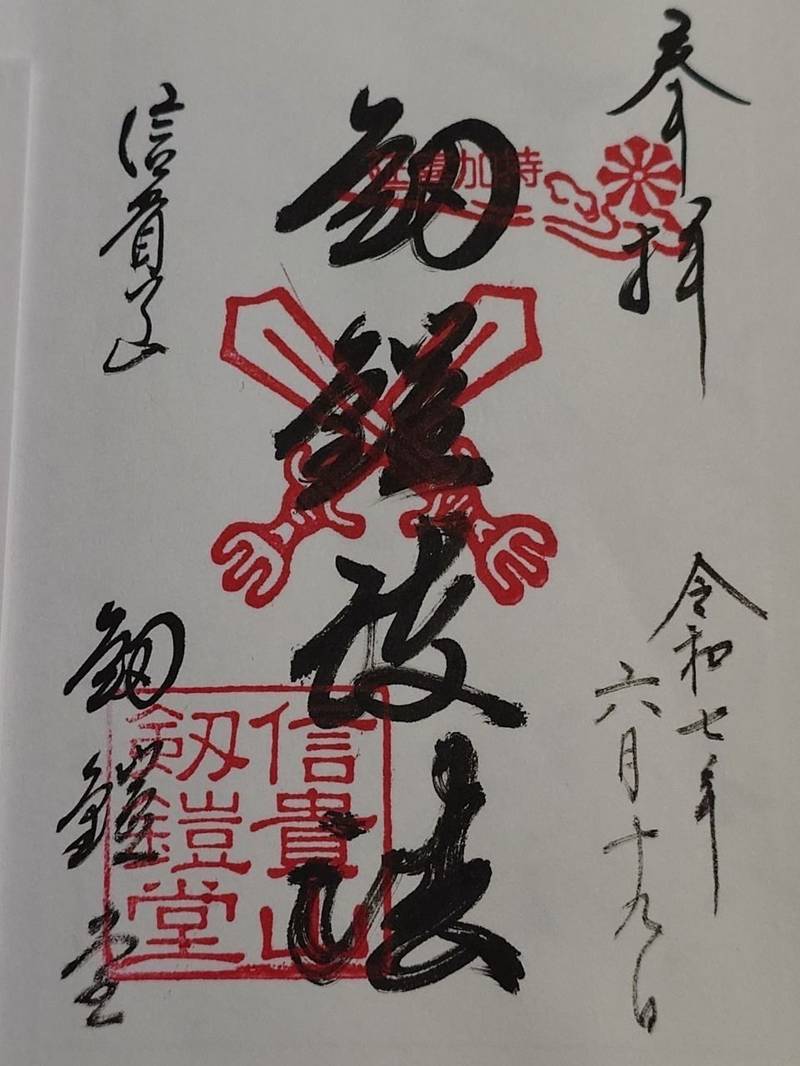 奉拝
令和七年
六月十九日
加持
釼鎧護法
信貴山
釼鎧堂
信貴山
釼鎧堂